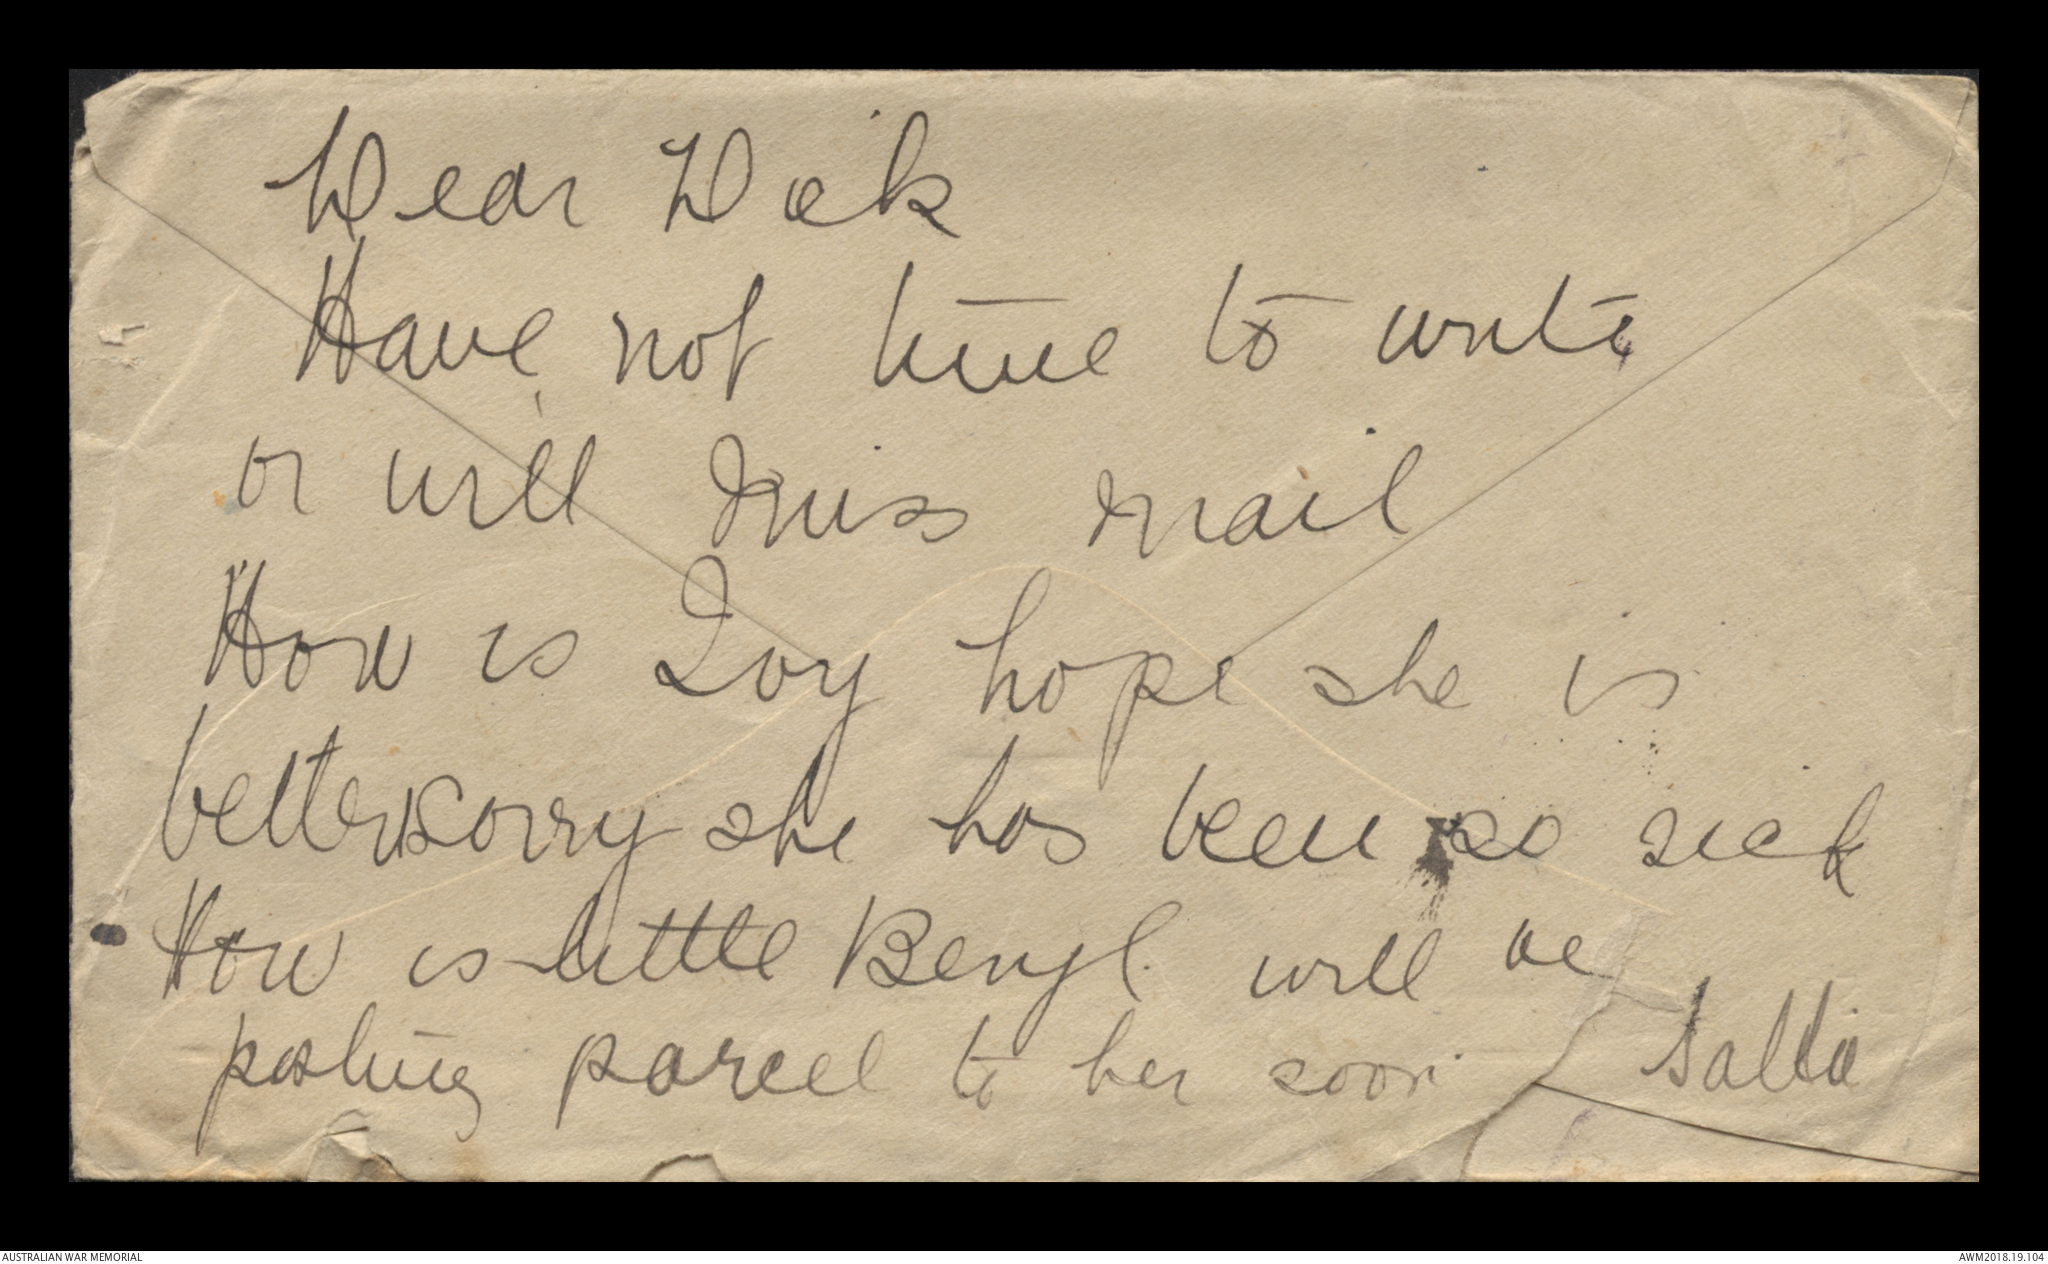 Dear Dick
Have not time to write
or will miss mail
How is Ivy hope she is
better sorry she has been so sick
How is little Beryl will be
posting parcel to her soon
AUSTRALIAN WAR MEMORIAL
AWM2018.19.104